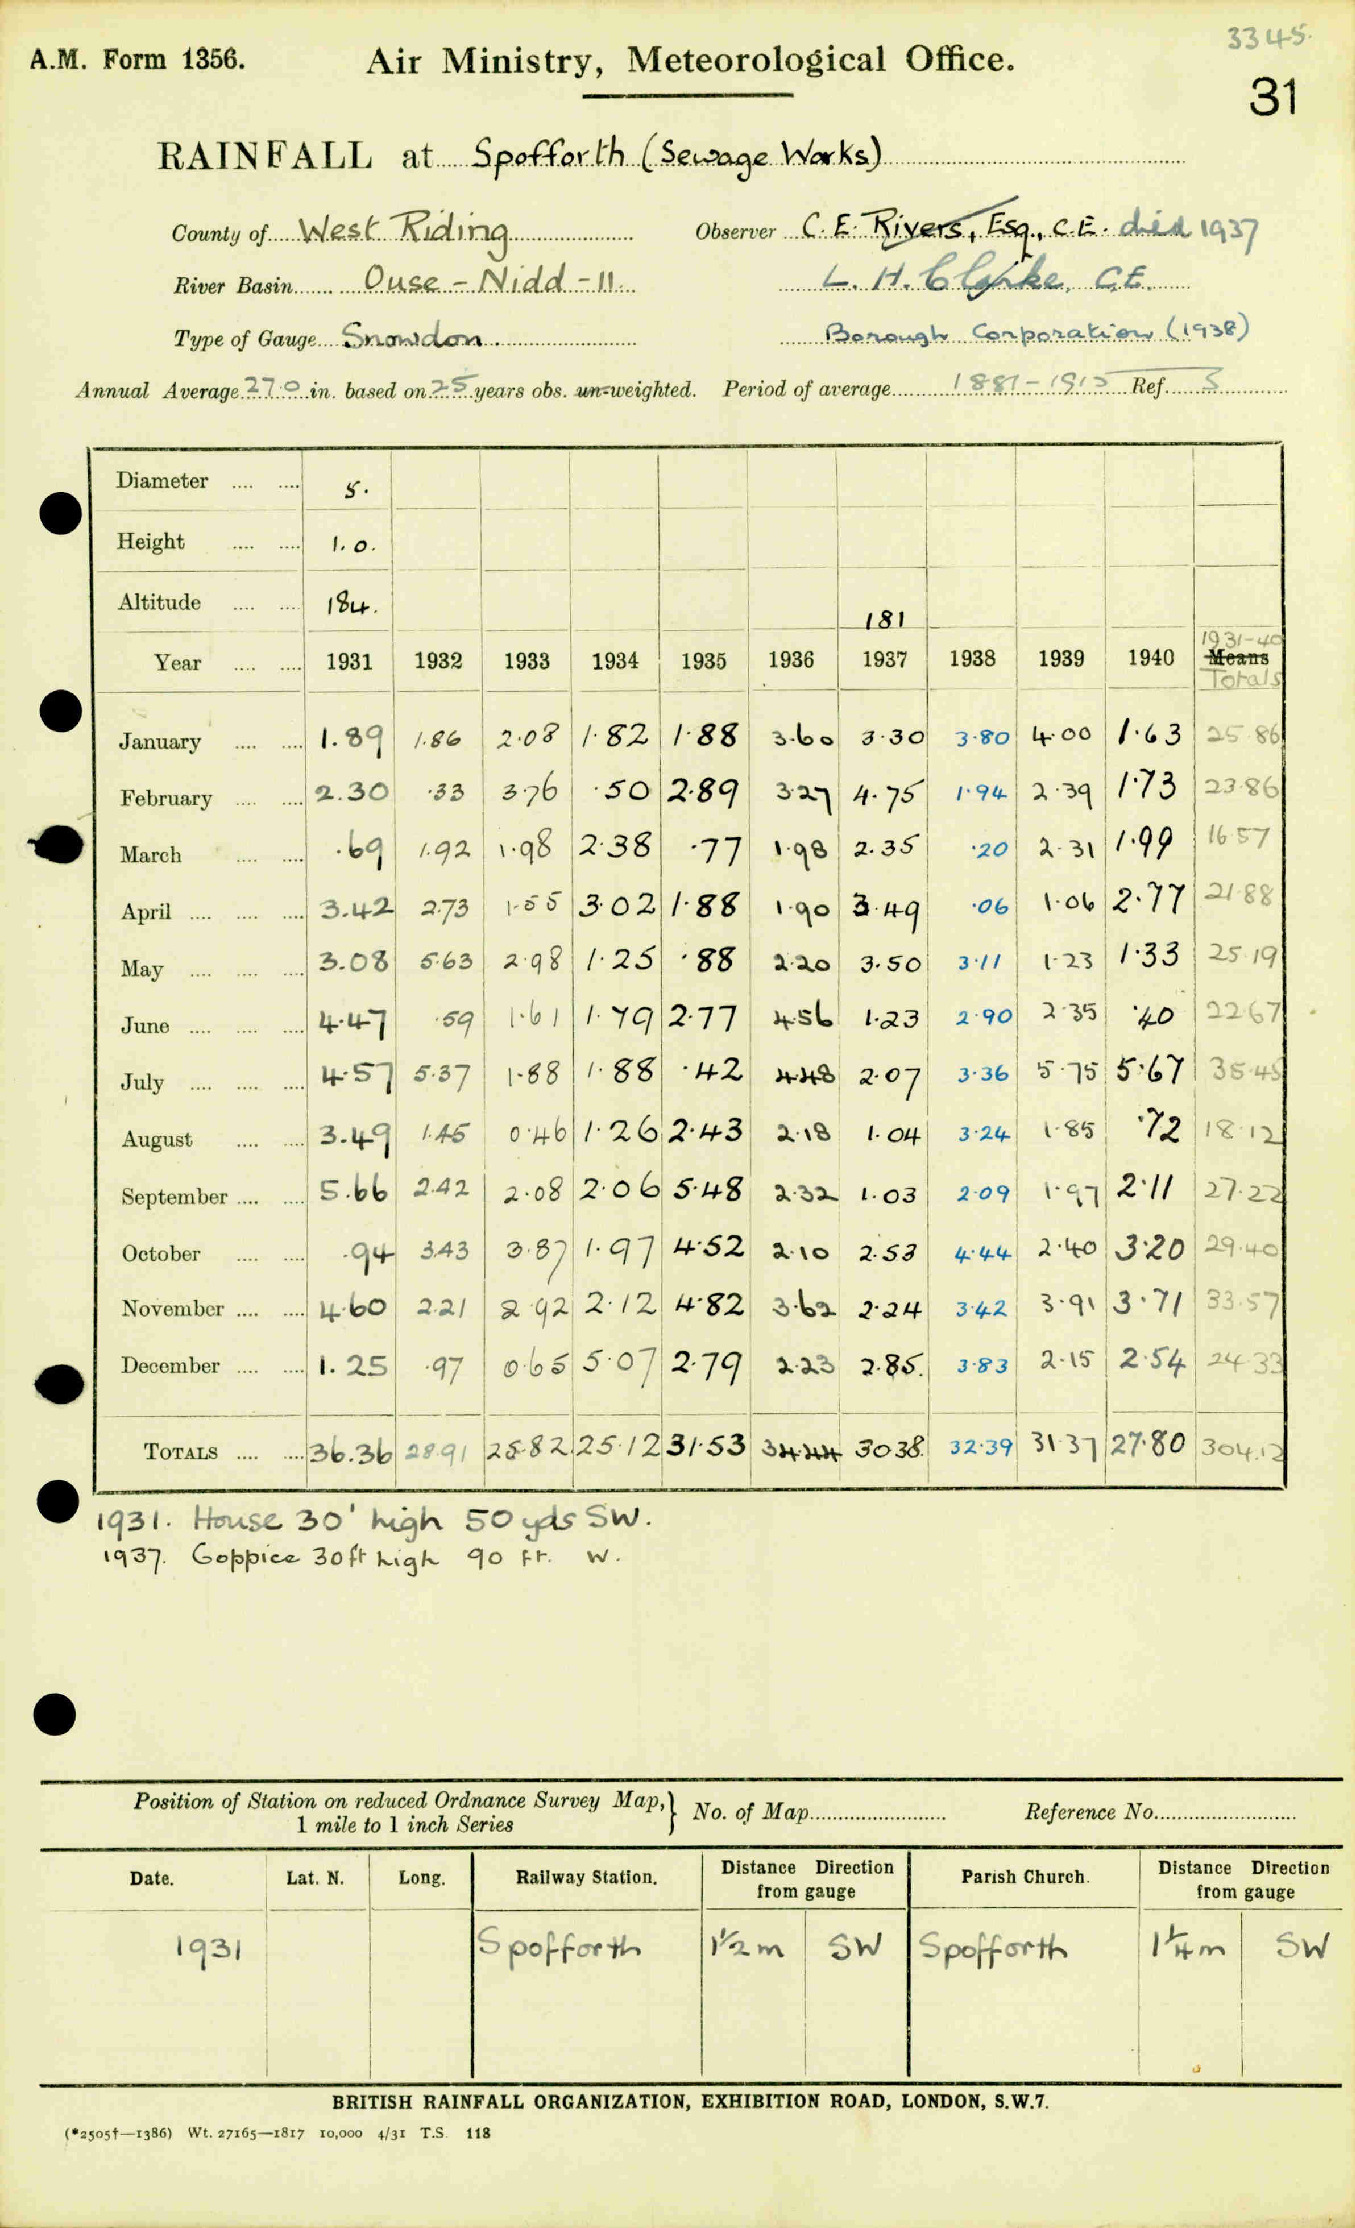 3345.
A.M. Form 1356. Air Ministry, Meteorological Office.
31
RAINFALL at Spofforth (Sewage Works)
County of West Riding Observer C. E. Rivers, Esq., C.E. died 1937
River Basin Ouse - Nidd - 11. L. H. Clarke, C.E.
Type of Gauge Snowdon. Borough Corporation (1938)
Annual Average 27.0 in. based on 25 years obs. un-weighted. Period of average 1881-1915 Ref. S
Diameter .... .... 5.
Height .... .... 1.0.
Altitude .... .... 184. 181
1931-40
Year .... .... 1931 1932 1933 1934 1935 1936 1937 1938 1939 1940 Means
Totals
January .... .... 1.89 1.86 2.08 1.82 1.88 3.60 3.30 3.80 4.00 1.63 25.86
February .... .... 2.30 .33 3.76 .50 2.89 3.27 4.75 1.94 2.39 1.73 23.86
March .... .... .69 1.92 1.98 2.38 .77 1.98 2.35 .20 2.31 1.99 16.57
April .... .... .... 3.42 2.73 1.55 3.02 1.88 1.90 3.49 .06 1.06 2.77 21.88
May .... .... .... 3.08 5.63 2.98 1.25 .88 2.20 3.50 3.11 1.23 1.33 25.19
June .... .... .... 4.47 .59 1.61 1.79 2.77 4.56 1.23 2.90 2.35 .40 22.67
July .... .... .... 4.57 5.37 1.88 1.88 .42 4.48 2.07 3.36 5.75 5.67 35.45
August .... .... 3.49 1.45 0.46 1.26 2.43 2.18 1.04 3.24 1.85 .72 18.12
September .... .... 5.66 2.42 2.08 2.06 5.48 2.32 1.03 2.09 1.97 2.11 27.22
October .... .... .94 3.43 3.87 1.97 4.52 2.10 2.53 4.44 2.40 3.20 29.40
November .... .... 4.60 2.21 2.92 2.12 4.82 3.62 2.24 3.42 3.91 3.71 33.57
December .... .... 1.25 .97 0.65 5.07 2.79 2.23 2.85. 3.83 2.15 2.54 24.33
TOTALS .... .... 36.36 28.91 25.82 25.12 31.53 34.44 30.38 32.39 31.37 27.80 304.12
1931. House 30' high 50 yds SW.
1937. Coppice 30ft high 90 ft. W.
Position of Station on reduced Ordnance Survey Map,} No. of Map Reference No.
1 mile to 1 inch Series
Date. Lat. N. Long. Railway Station. Distance Direction from gauge Parish Church. Distance Direction from gauge
1931 Spofforth 1½ m SW Spofforth 1¼ m SW
BRITISH RAINFALL ORGANIZATION, EXHIBITION ROAD, LONDON, S.W.7.
(*2505†—1386) Wt. 27165—1817 10,000 4/31 T.S. 118